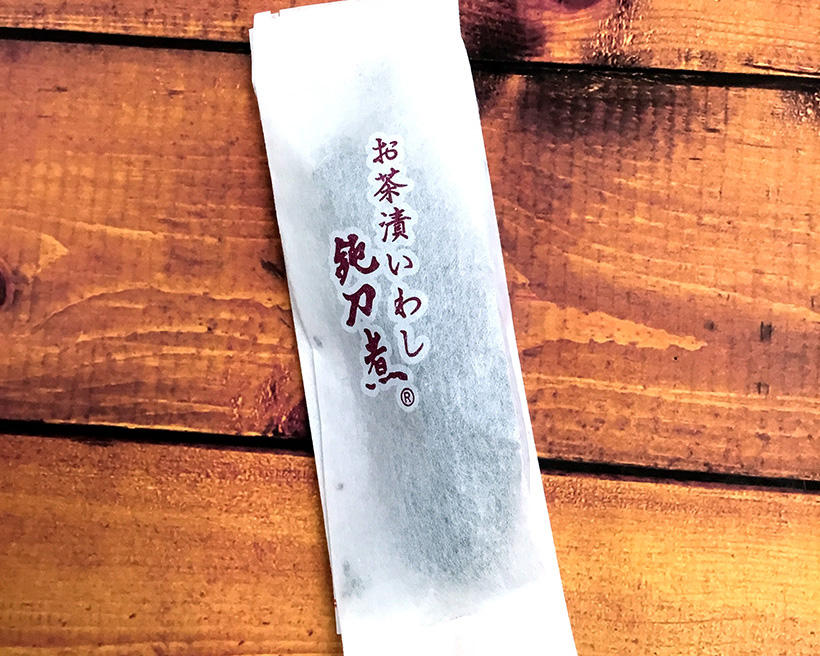 お茶漬いわし
鈍刀煮®